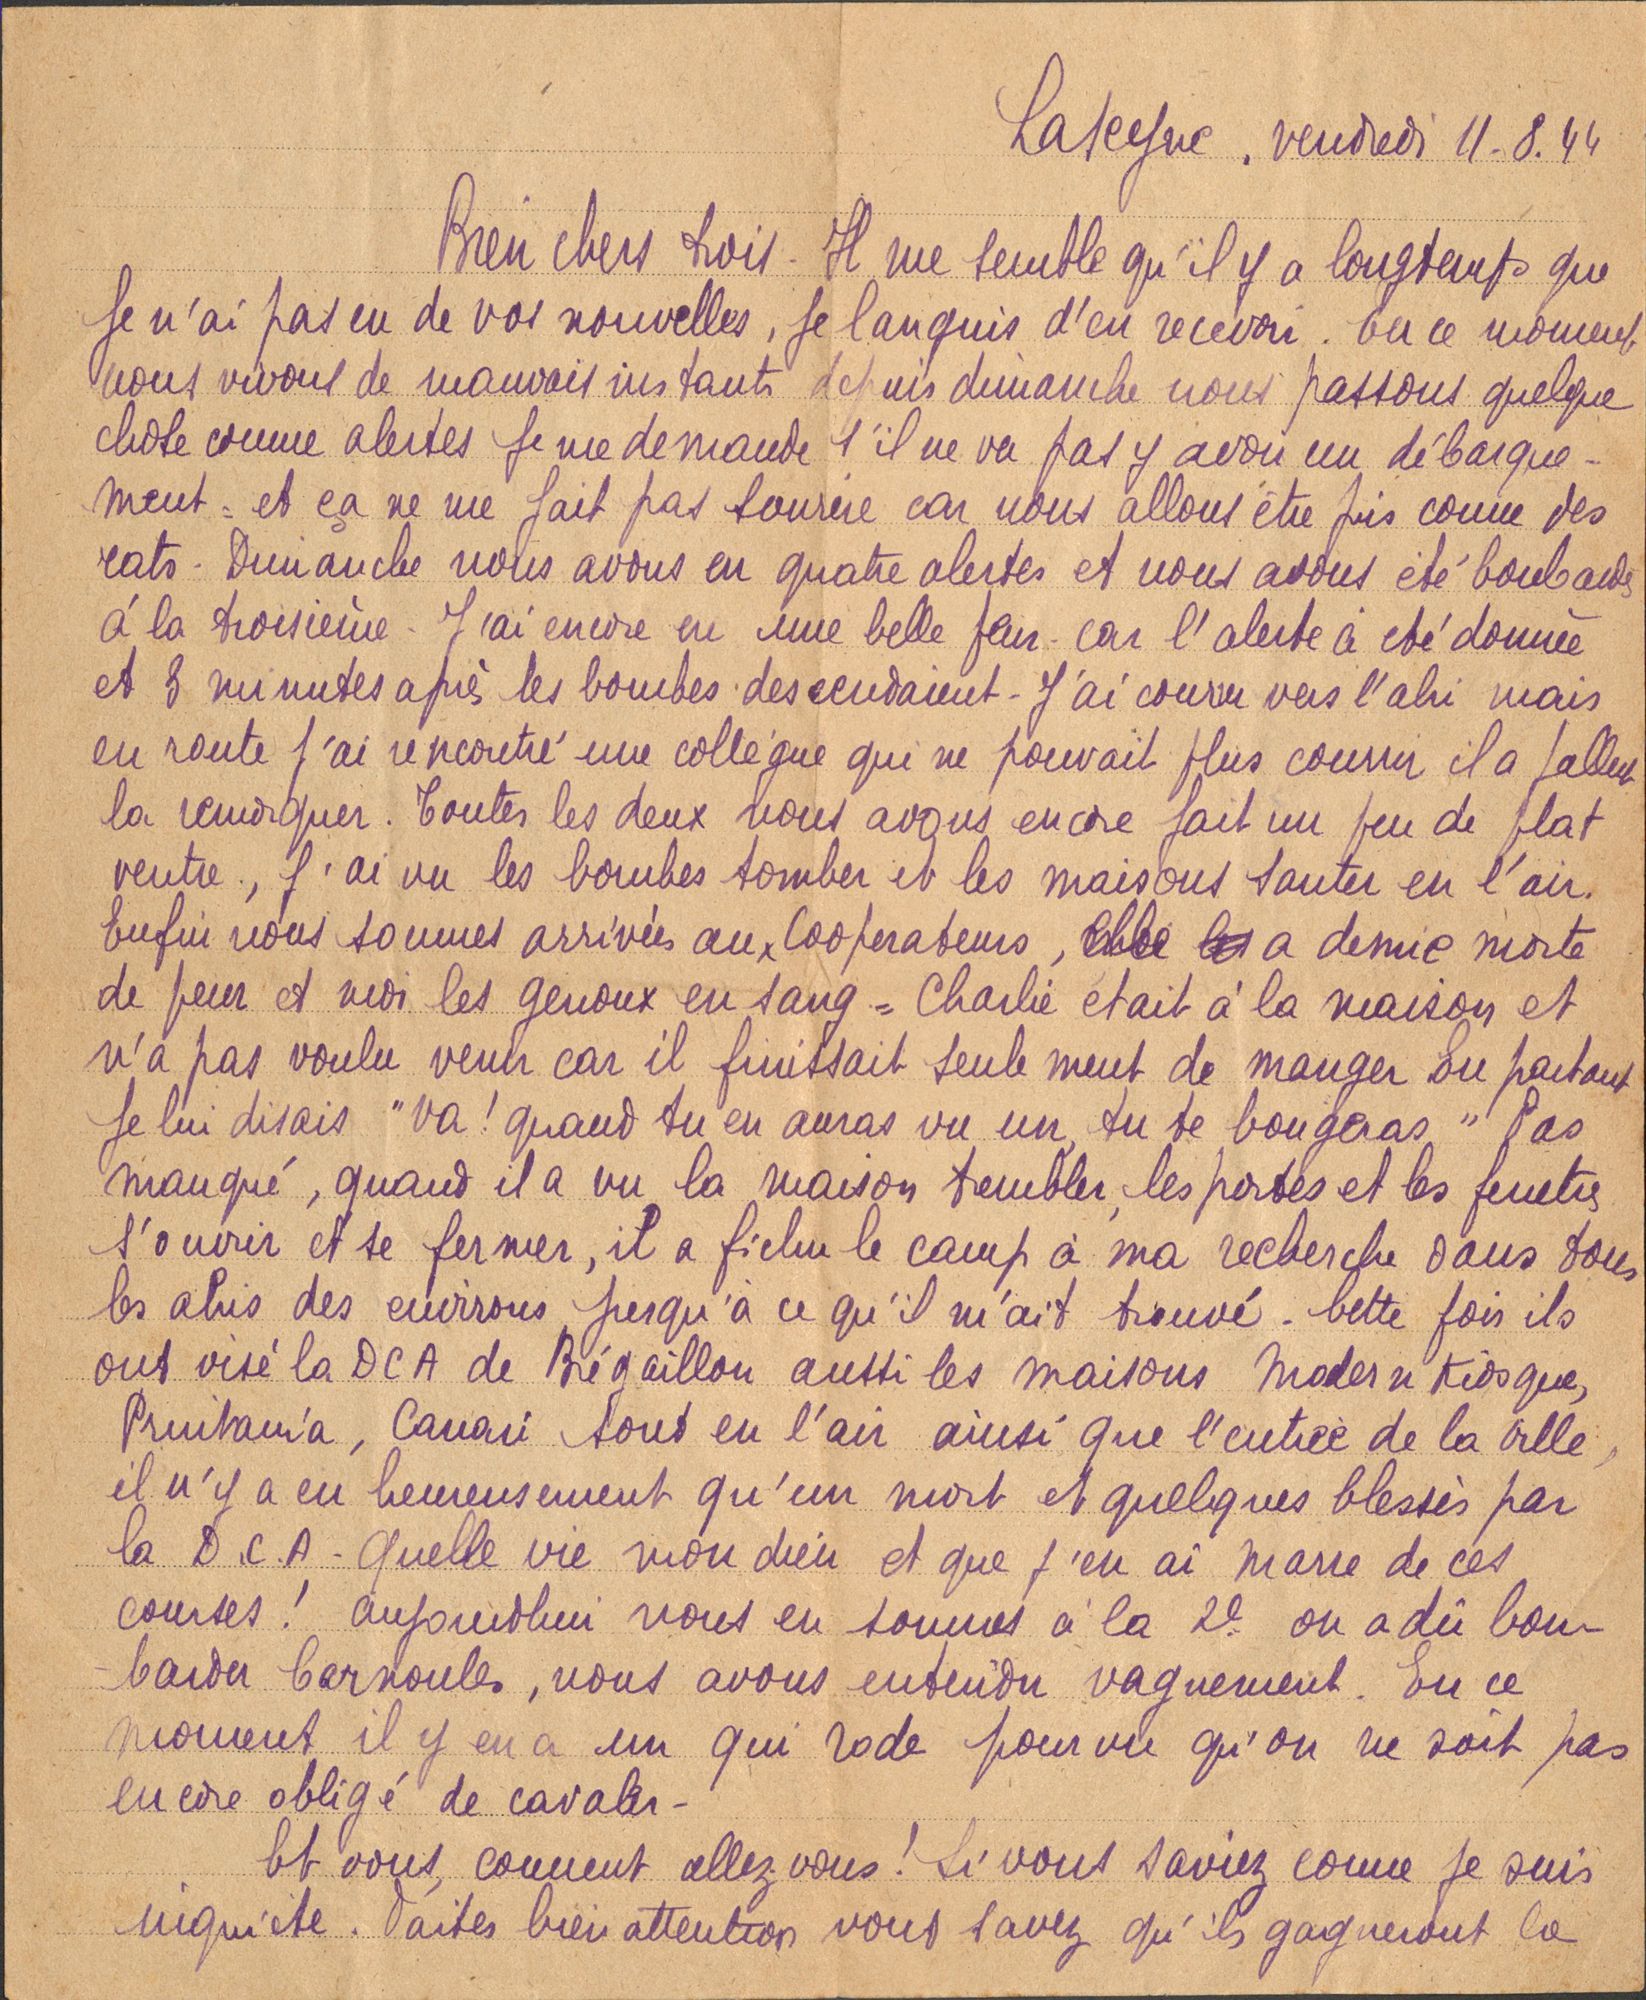 La Seyne, vendredi 11-8.44
Bien chers trois - Il me semble qu'il y a longtemps que
je n'ai pas eu de vos nouvelles, je languis d'en recevoir. En ce moment
nous vivons de mauvais instants depuis dimanche nous passons quelque
chose comme alertes je me demande s'il ne va pas y avoir un débarque-
ment = et ça ne me fait pas sourire car nous allons être pris comme des
rats - Dimanche nous avons eu quatre alertes et nous avons été bombardés
à la troisième - J'ai encore eu une belle peur - car l'alerte à été donnée
et 8 minutes après les bombes descendaient - J'ai couru vers l'abri mais
en route j'ai rencontré une collègue qui ne pouvait plus courrir il a fallut
la remorquer. Toutes les deux nous avons encore fait un peu de plat
ventre, j'ai vu les bombes tomber et les maisons sauter en l'air.
Enfin nous sommes arrivées aux Cooperateurs, a demie morte
de peur et moi les genoux en sang = Charlie était à la maison et
n'a pas voulu venir car il finissait seulement de manger En partant
je lui disais "Va! quand tu en auras vu un, tu te bougeras" Pas
manqué, quand il a vu la maison trembler, les portes et les fenetres
s'ouvrir et se fermer, il a fichu le camp à ma recherche dans tous
les abris des environs jusqu'à ce qu'il m'ait trouvé - Cette fois ils
ont visé la DCA de Brégaillon aussi les maisons Modern Kiosque,
Prinitania, Canari sont en l'air ainsi que l'entrée de la ville,
il n'y a eu heureusement qu'un mort et quelques blessés par
la D.C.A - Quelle vie mon dieu et que j'en ai marre de ces
courses! aujourdhui nous en sommes à la 2e on a dû bom-
-barder Carnoules, nous avons entendu vaguement. En ce
moment il y en a un qui rode pourvu qu'on ne soit pas
encore obligé de cavaler -
Et vous, comment allez vous! Si vous saviez comme je suis
inquiète. Faites bien attention vous savez qu'ils gagneront la